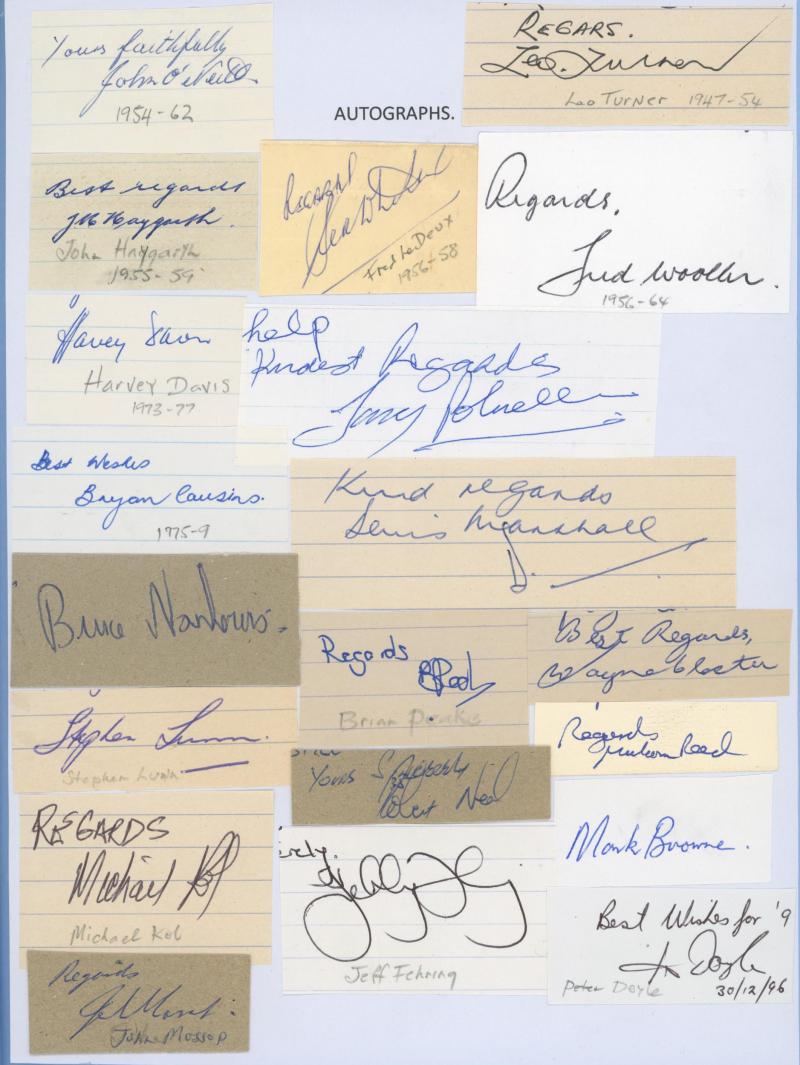 Yours faithfully
John O'Neill
1954-62
REGARS.
Leo. Turner
Leo Turner 1947-54
AUTOGRAPHS.
Best regards
J M Haygarth.
John Haygarth
1955-59
Regards
Fred Le Deux
1956-58
Regards,
Fred Wooller.
1956-64
Harvey Davis
Harvey Davis
1973-77
help
Kindest Regards
Best Wishes
Bryan Cousins.
1975-9
Kind regards
Denis Marshall
D.
Bruce Nankervis.
Regards
B Peake
Brian Peake
Best Regards,
Wayne Closter
Stephen Lunn.
Stephen Lunn
Yours Sincerely
Neal
Regards
Malcolm Reed
REGARDS
Michael Kol
Michael Kol
erely.
Jeff Fehring
Jeff Fehring
Mark Browne.
Best Wishes for '9
P Doyle
Peter Doyle 30/12/96
Regards
John Mossop